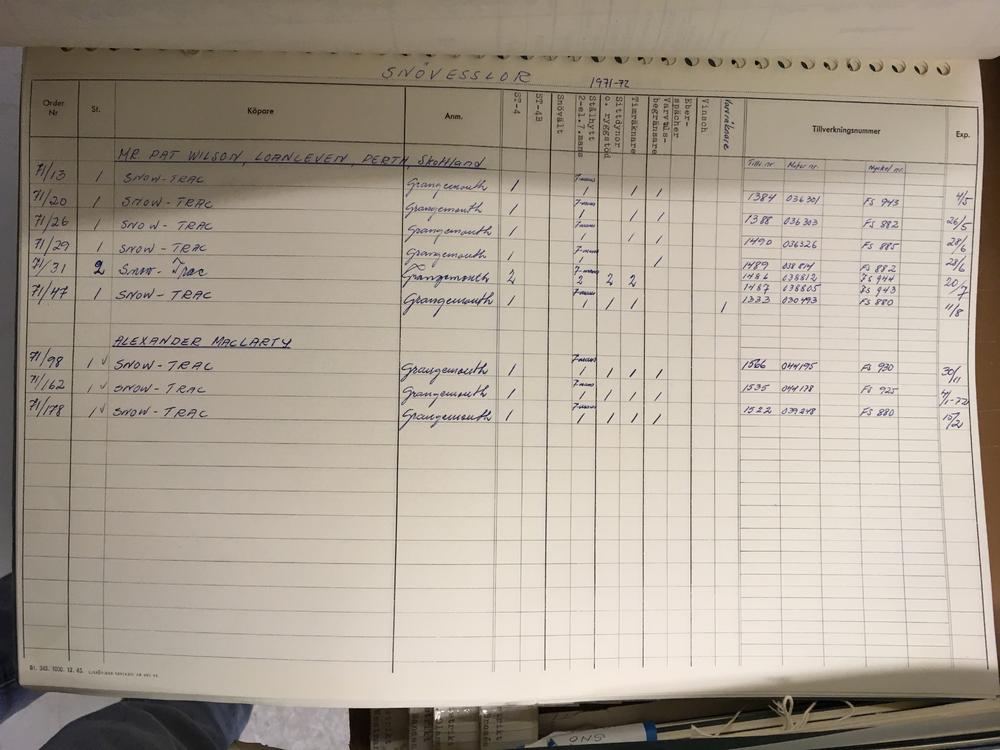 SNÖVESSLOR 1971-72
Order Nr St. Köpare Anm. ST-4 ST-4B Snövält Stålhytt 2-el.7.mans Sittdynor o. ryggstöd Timräknare Varvtals-begränsare Eber-spächer Vinsch Tillverkningsnummer Exp.
MR. PAT WILSON, LOANLEVEN, PERTH, Skottland Tillv nr. Motor nr. Nyckel nr.
71/13 1 SNOW-TRAC Grangemouth 1 7-mans 1 1 1 1384 036301 FS 943 4/5
71/20 1 SNOW-TRAC Grangemouth 1 7-mans 1 1 1 1388 036303 FS 882 26/5
71/26 1 SNOW-TRAC Grangemouth 1 7-mans 1 1 1 1490 036326 FS 885 28/6
71/29 1 SNOW-TRAC Grangemouth 1 7-mans 1 1 1489 038814 FS 882 28/6
71/31 2 Snow-Trac Grangemouth 2 7-mans 2 2 2 1486 038812 FS 944 20/7
1487 038805 FS 943
71/47 1 SNOW-TRAC Grangemouth 1 7-mans 1 1 1 1 1333 030493 FS 880 11/8
ALEXANDER MACLARTY
71/98 1 √ SNOW-TRAC Grangemouth 1 7-mans 1 1 1 1 1566 044195 FS 930 30/11
71/162 1 √ SNOW-TRAC Grangemouth 1 7-mans 1 1 1 1 1535 044178 FS 925 4/1-72
71/178 1 √ SNOW-TRAC Grangemouth 1 7-mans 1 1 1 1 1522 039248 FS 880 15/2
Bl. 343. 1000. 12. 65.